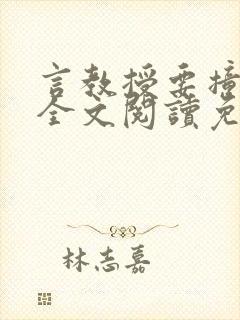 言教授要撞
全文閱讀免
林志嘉